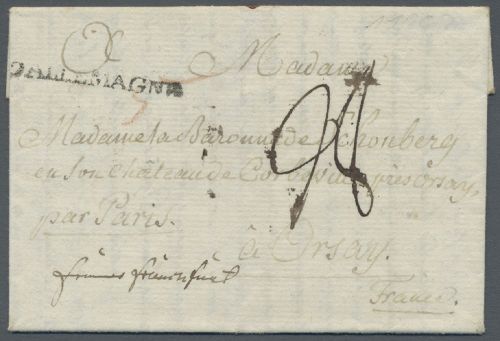 A
Madame
D'ALLEMAGNE
Madame la Baronne de Schonberg
en son Château de Corbeville près Orsay,
par Paris.
à Orsay.
France.